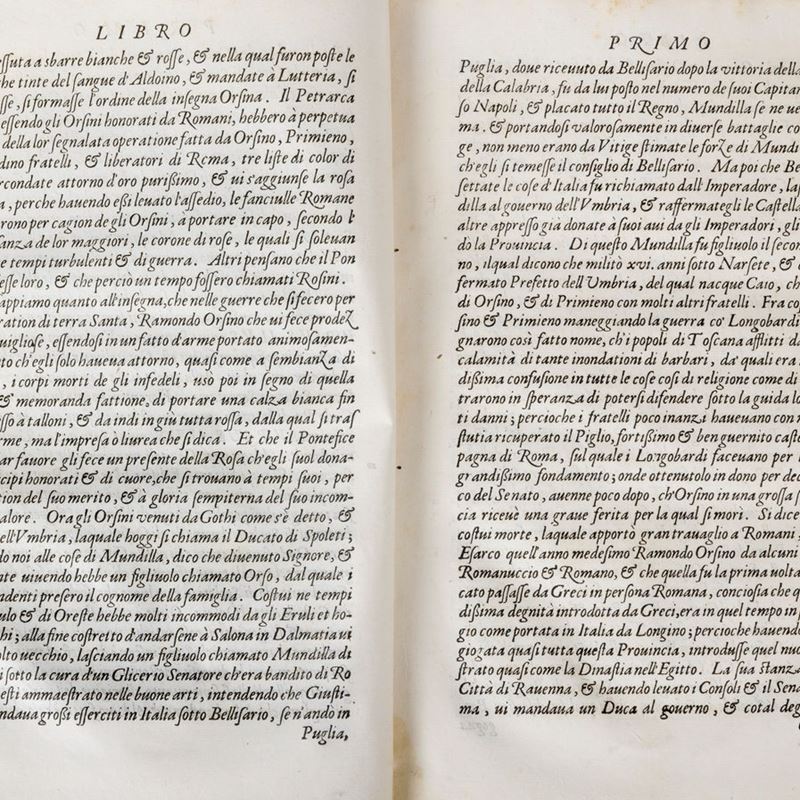 LIBRO
ssuta a sbarre bianche & rosse, & nella qual furon poste le
che tinte del sangue d'Aldoino, & mandate à Lutteria, si
sse, si formasse l'ordine della insegna Orsina. Il Petrarca
essendo gli Orsini honorati da Romani, hebbero à perpetua
della lor segnalata operatione fatta da Orsino, Primieno,
dino fratelli, & liberatori di Roma, tre liste di color di
rcondate attorno d'oro purißimo, & ui s'aggiunse la rosa
a, perche hauendo eßi leuato l'assedio, le fanciulle Romane
rono per cagion de gli Orsini, à portare in capo, secondo l'
anza de lor maggiori, le corone di rose, le quali si soleuan
e tempi turbulenti & di guerra. Altri pensano che il Pon
esse loro, & che perciò un tempo fossero chiamati Rosini.
appiamo quanto all'insegna, che nelle guerre che si fecero per
ration di terra Santa, Ramondo Orsino che ui fece prodez
uigliose, essendosi in un fatto d'arme portato animosamen-
to ch'egli solo haueua attorno, quasi come a sembianza di
, i corpi morti de gli infedeli, usò poi in segno di quella
& memoranda fattione, di portare una calza bianca fin
sso à talloni, & da indi in giù tutta rossa, dalla qual si tras
rme, ma l'impresa ò liurea che si dica. Et che il Pontefice
ar fauore gli fece un presente della Rosa ch'egli suol dona-
cipi honorati & di cuore, che si trouano à tempi suoi, per
tion del suo merito, & à gloria sempiterna del suo incom-
alore. Ora gli Orsini venuti da Gothi come s'è detto, &
ell'Vmbria, laquale hoggi si chiama il Ducato di Spoleti;
do noi alle cose di Mundilla, dico che diuenuto Signore, &
te uiuendo hebbe un figliuolo chiamato Orso, dal quale i
ndenti presero il cognome della famiglia. Costui ne tempi
ulo & di Oreste hebbe molti incommodi da gli Eruli et ho-
hi; alla fine costretto d'andarsene à Salona in Dalmatia ui
olto uecchio, lasciando un figliuolo chiamato Mundilla di
i sotto la cura d'un Glicerio Senatore ch'era bandito di Ro
esti ammaestrato nelle buone arti, intendendo che Giusti-
ndaua großi esserciti in Italia sotto Bellisario, se n'andò in
Puglia,
PRIMO
Puglia, doue riceuuto da Bellisario dopo la vittoria della
della Calabria, fu da lui posto nel numero de suoi Capitan
so Napoli, & placato tutto il Regno, Mundilla se ne ue
ma. & portandosi valorosamente in diuerse battaglie co
ge, non meno erano da Vitige stimate le forze di Mundi
ch'egli si temesse il consiglio di Bellisario. Ma poi che Be
settate le cose d'Italia fu richiamato dall'Imperadore, la
dilla al gouerno dell'Vmbria, & raffermategli le Castella
altre appresso già donate à suoi aui da gli Imperadori, gli
dò la Prouincia. Di questo Mundilla fu figliuolo il secon
no, ilqual dicono che militò xvi. anni sotto Narsete, &
fermato Prefetto dell'Vmbria, del qual nacque Caio, ch
di Orsino, & di Primieno con molti altri fratelli. Fra co
sino & Primieno maneggiando la guerra co' Longobardi
gnarono così fatto nome, ch'i popoli di Toscana afflitti da
calamità di tante inondationi di barbari, da' quali era
dißima confusione in tutte le cose così di religione come di
trarono in speranza di potersi difendere sotto la guida lo
ti danni; percioche i fratelli poco inanzi haueuano con
stutia ricuperato il Piglio, fortißimo & ben guernito caste
pagna di Roma, sul quale i Longobardi faceuano per
grandißimo fondamento; onde ottenutolo in dono per dec
co del Senato, auenne poco dopo, ch'Orsino in una grossa
cia riceuè una graue ferita per la qual si morì. Si dice
costui morte, laquale apportò gran trauaglio a Romani,
Esarco quell'anno medesimo Ramondo Orsino da alcuni
Romanuccio & Romano, & che quella fu la prima uolta
cato passasse da Greci in persona Romana, conciosia che q
dißima degnità introdotta da Greci, era in quel tempo in
gio come portata in Italia da Longino; percioche hauendo
giogata quasi tutta questa Prouincia, introdusse quel nuo
strato quasi come la Dinastia nell'Egitto. La sua stanza
Città di Rauenna, & hauendo leuato i Consoli & il Sena
ma, ui mandaua un Duca al gouerno, & cotal deg